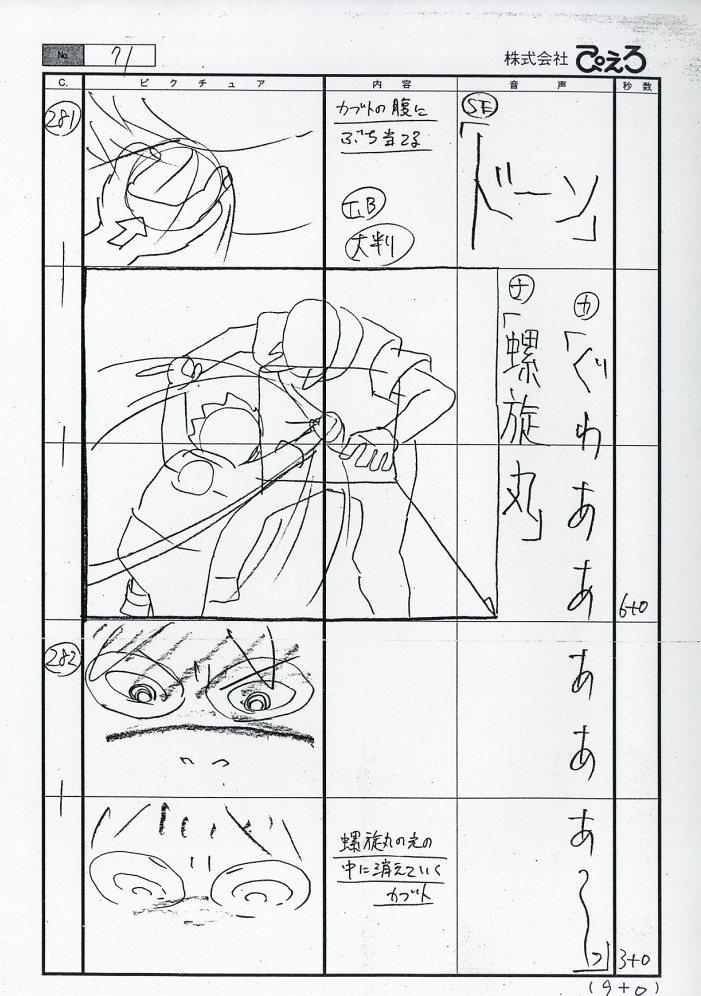 No. 71
株式会社 ぴえろ
C. ピクチュア 内容 音声 秒数
281
カブトの腹に
ぶち当てる
T.B
大判
SE
「ドーン」
ナ
「螺旋丸」
カ
「ぐわあああああ〜っ」
6+0
282
螺旋丸の光の
中に消えていく
カブト
3+0
(9+0)